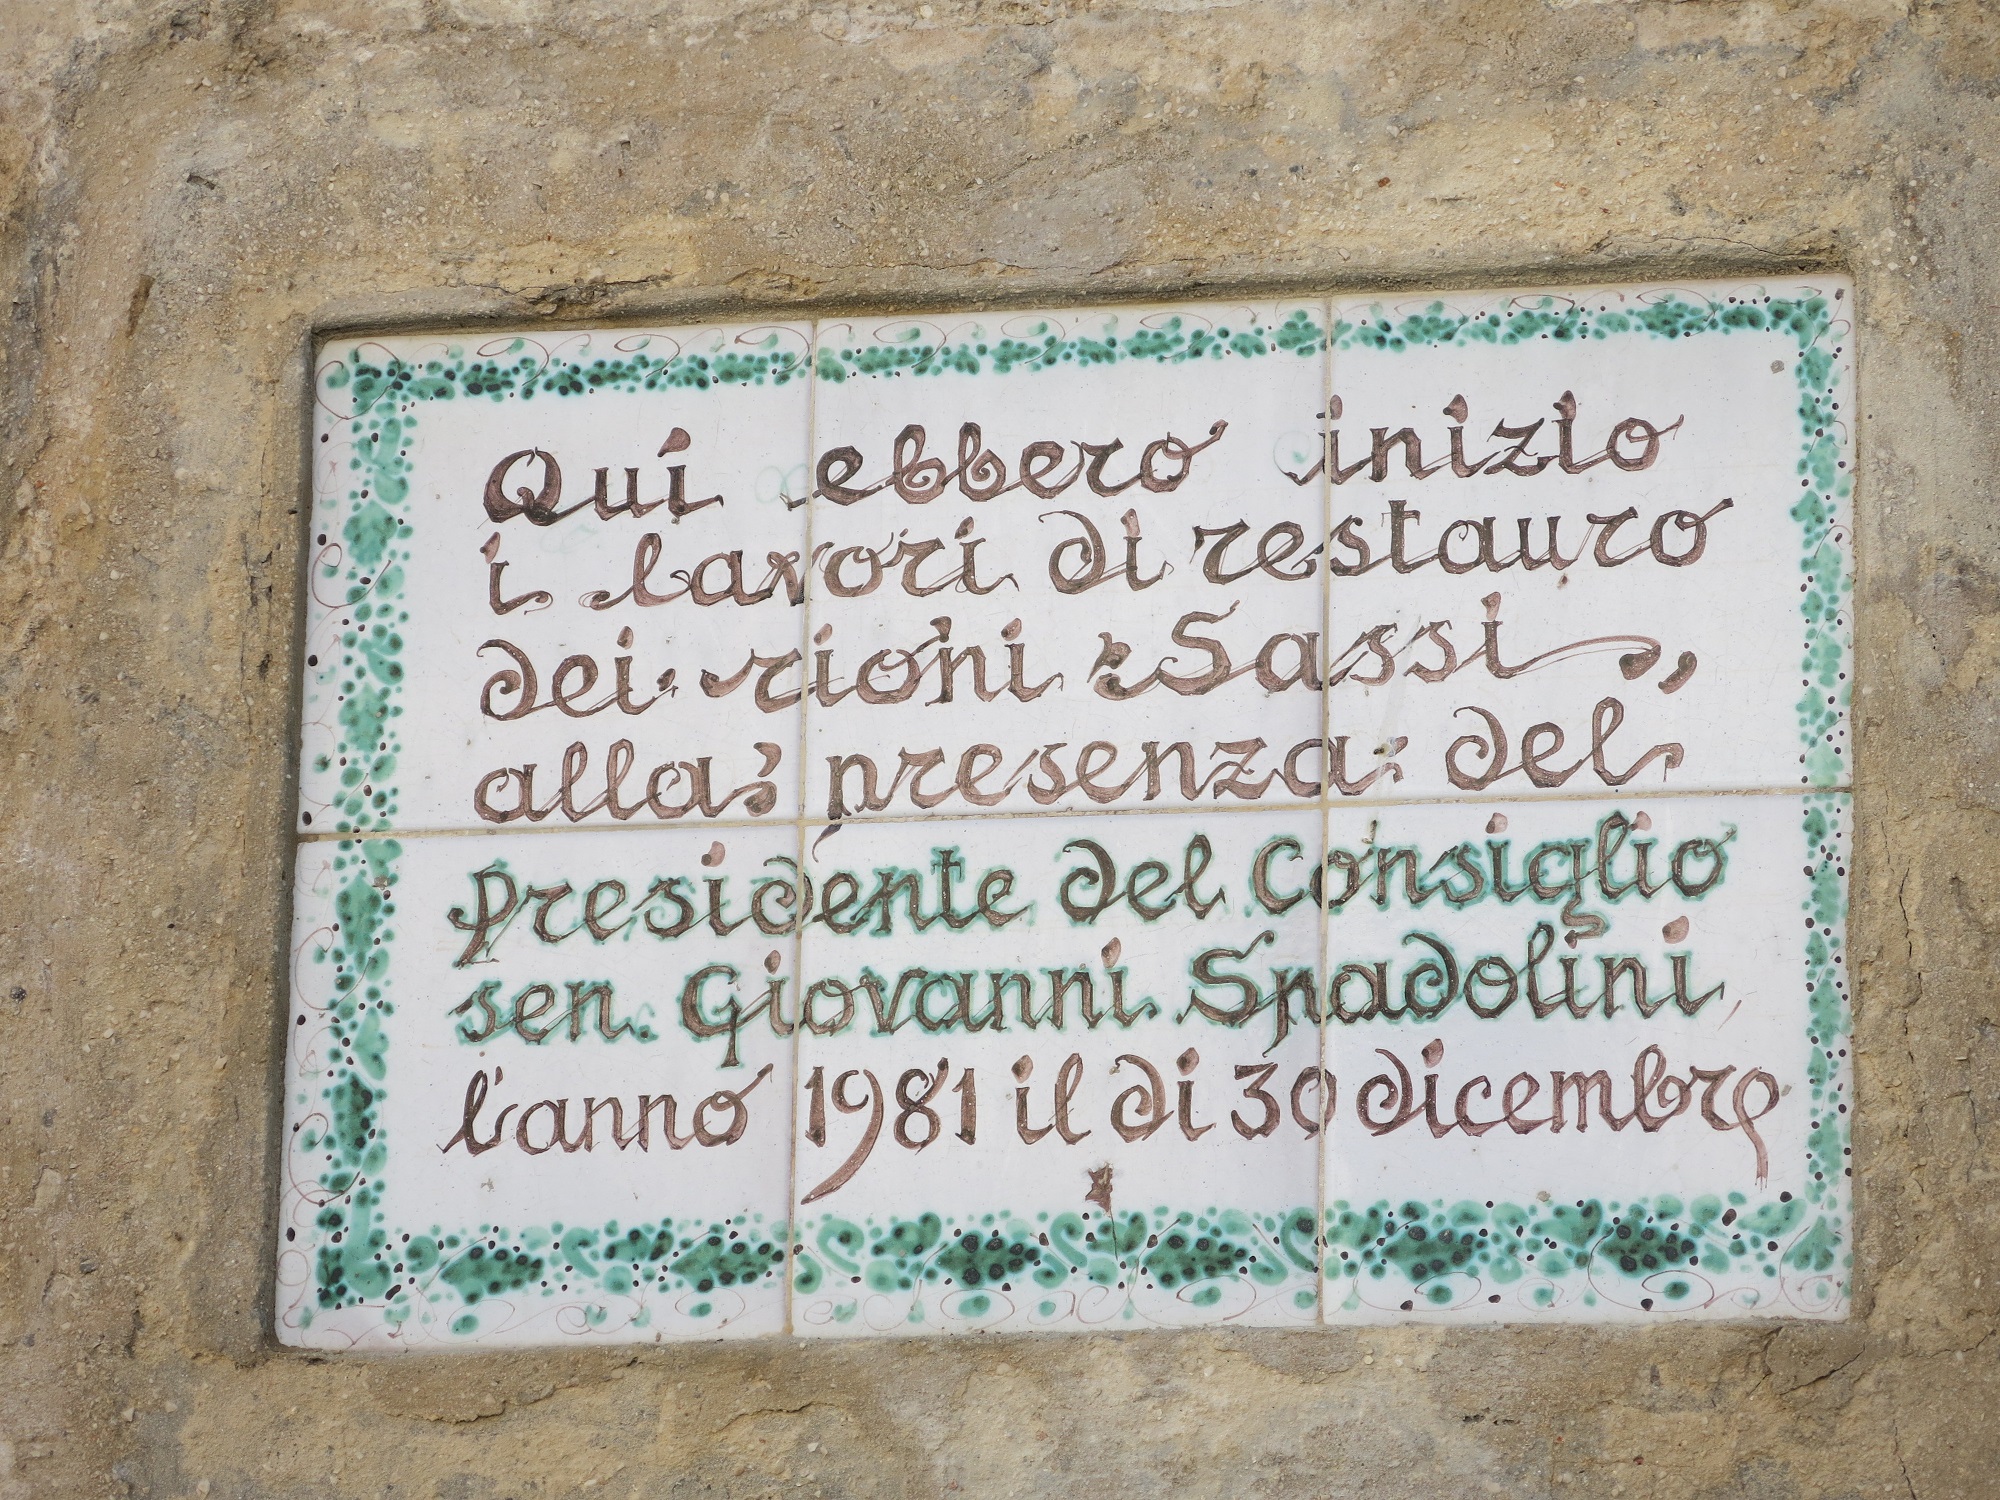 Qui ebbero inizio
i lavori di restauro
dei rioni Sassi,
alla presenza del
Presidente del Consiglio
sen. Giovanni Spadolini
l'anno 1981 il di 30 dicembre